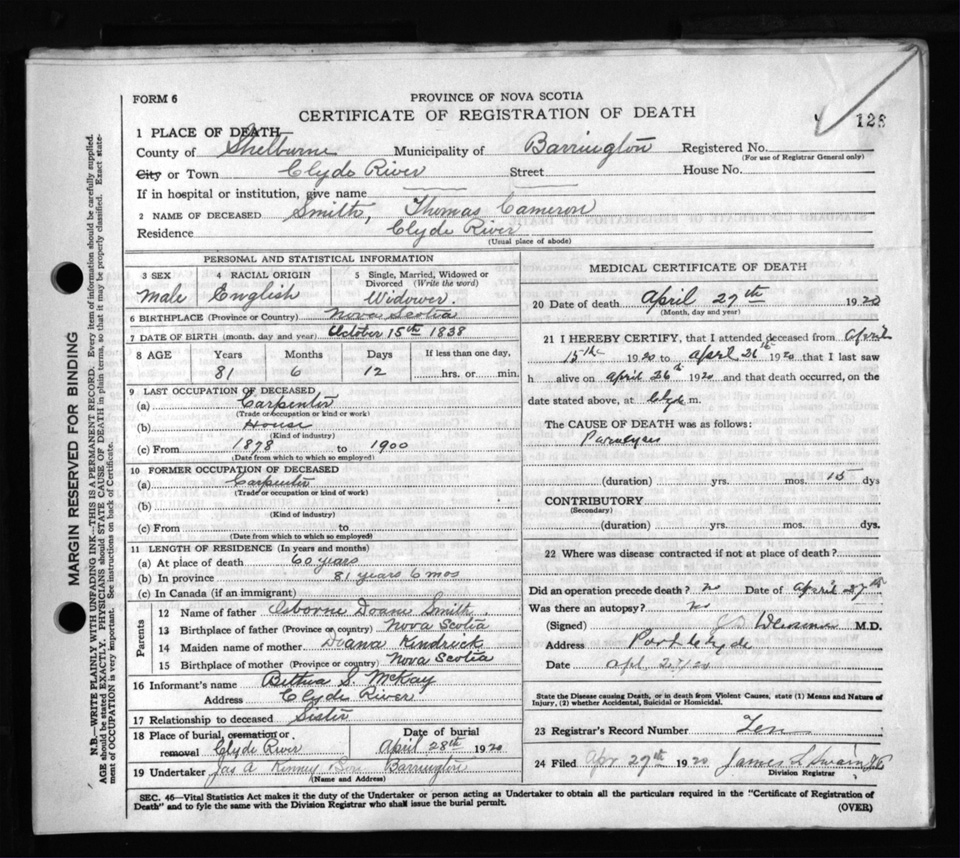 FORM 6
PROVINCE OF NOVA SCOTIA
CERTIFICATE OF REGISTRATION OF DEATH
128
1 PLACE OF DEATH
County of Shelburne Municipality of Barrington Registered No.
(For use of Registrar General only)
City or Town Clyde River Street House No.
If in hospital or institution, give name
2 NAME OF DECEASED Smith, Thomas Cameron
Residence Clyde River
(Usual place of abode)
PERSONAL AND STATISTICAL INFORMATION
3 SEX 4 RACIAL ORIGIN 5 Single, Married, Widowed or
Divorced (Write the word)
Male English Widower.
6 BIRTHPLACE (Province or Country) Nova Scotia
7 DATE OF BIRTH (month, day and year) October 15th 1838
8 AGE Years Months Days If less than one day,
81 6 12 hrs. or min.
9 LAST OCCUPATION OF DECEASED
(a) Carpenter
(Trade or occupation or kind of work)
(b) House
(Kind of industry)
(c) From 1878 to 1900
(Date from which to which so employed)
10 FORMER OCCUPATION OF DECEASED
(a) Carpenter
(Trade or occupation or kind of work)
(b)
(Kind of industry)
(c) From to
(Date from which to which so employed)
11 LENGTH OF RESIDENCE (In years and months)
(a) At place of death 60 years
(b) In province 81 years 6 mos
(c) In Canada (if an immigrant)
Parents
12 Name of father Osborne Doane Smith
13 Birthplace of father (Province or country) Nova Scotia
14 Maiden name of mother Doana Kendrick
15 Birthplace of mother (Province or country) Nova Scotia
16 Informant's name Bethia S. McKay
Address Clyde River
17 Relationship to deceased Sister
18 Place of burial, cremation or Date of burial
removal Clyde River April 28th 1920
19 Undertaker Jas A Kinney Son Barrington
(Name and Address)
MEDICAL CERTIFICATE OF DEATH
20 Date of death April 27th 1920
(Month, day and year)
21 I HEREBY CERTIFY, that I attended deceased from April
15th 1920 to April 26th 1920 that I last saw
h alive on April 26th 1920 and that death occurred, on the
date stated above, at Clyde m.
The CAUSE OF DEATH was as follows:
Paralysis
(duration) yrs. mos. 15 dys
CONTRIBUTORY
(Secondary)
(duration) yrs. mos. dys.
22 Where was disease contracted if not at place of death?
Did an operation precede death? no Date of April 27th
Was there an autopsy? no
(Signed) M.D.
Address Port Clyde
Date Apl 27/20
State the Disease causing Death, or in death from Violent Causes, state (1) Means and Nature of
Injury, (2) whether Accidental, Suicidal or Homicidal.
23 Registrar's Record Number Ten
24 Filed Apr 27th 1920 James L Swain
Division Registrar
SEC. 46—Vital Statistics Act makes it the duty of the Undertaker or person acting as Undertaker to obtain all the particulars required in the "Certificate of Registration of
Death" and to fyle the same with the Division Registrar who shall issue the burial permit.
(OVER)
MARGIN RESERVED FOR BINDING
N.B.—WRITE PLAINLY WITH UNFADING INK—THIS IS A PERMANENT RECORD. Every item of information should be carefully supplied.
AGE should be stated EXACTLY. PHYSICIANS should STATE CAUSE OF DEATH in plain terms, so that it may be properly classified. Exact state-
ment of OCCUPATION is very important. See instructions on back of Certificate.